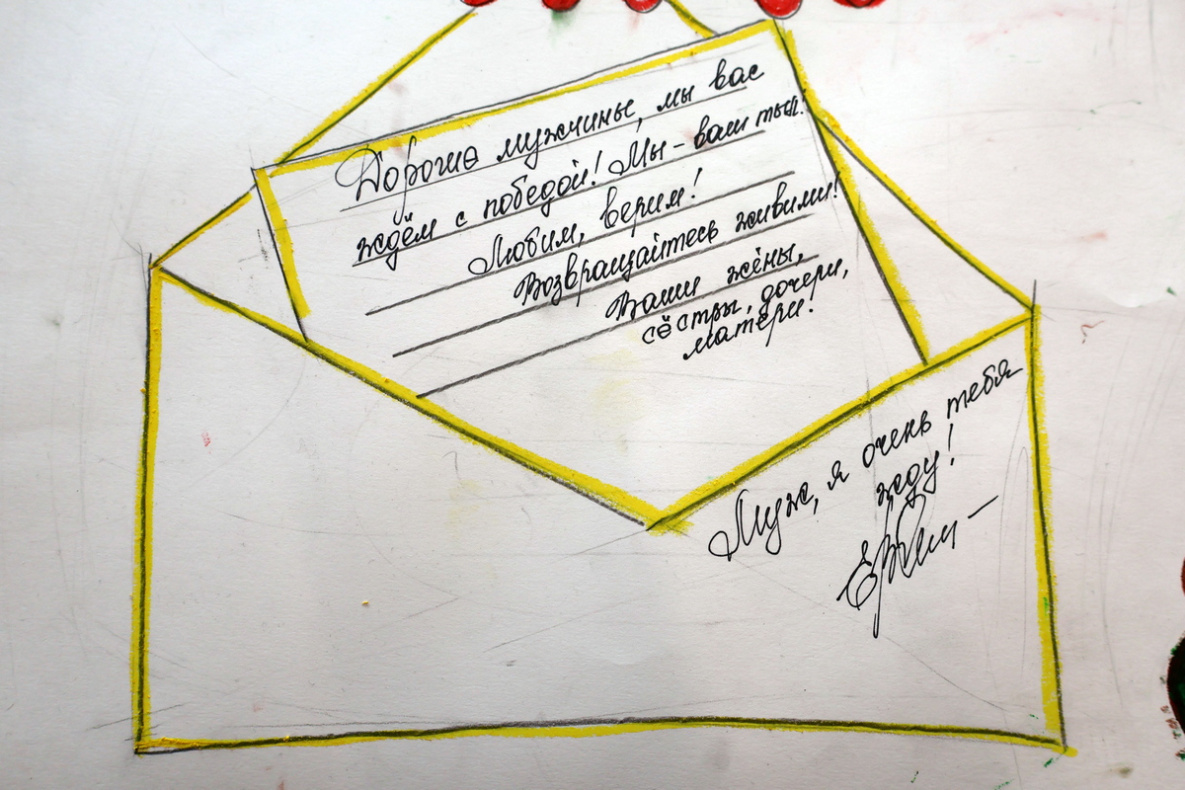 Дорогие мужчины, мы вас
ждём с победой! Мы - ваш тыл!
Любим, верим!
Возвращайтесь живыми!
Ваши жёны,
сёстры, дочери,
матери!
Муж, я очень тебя
жду!